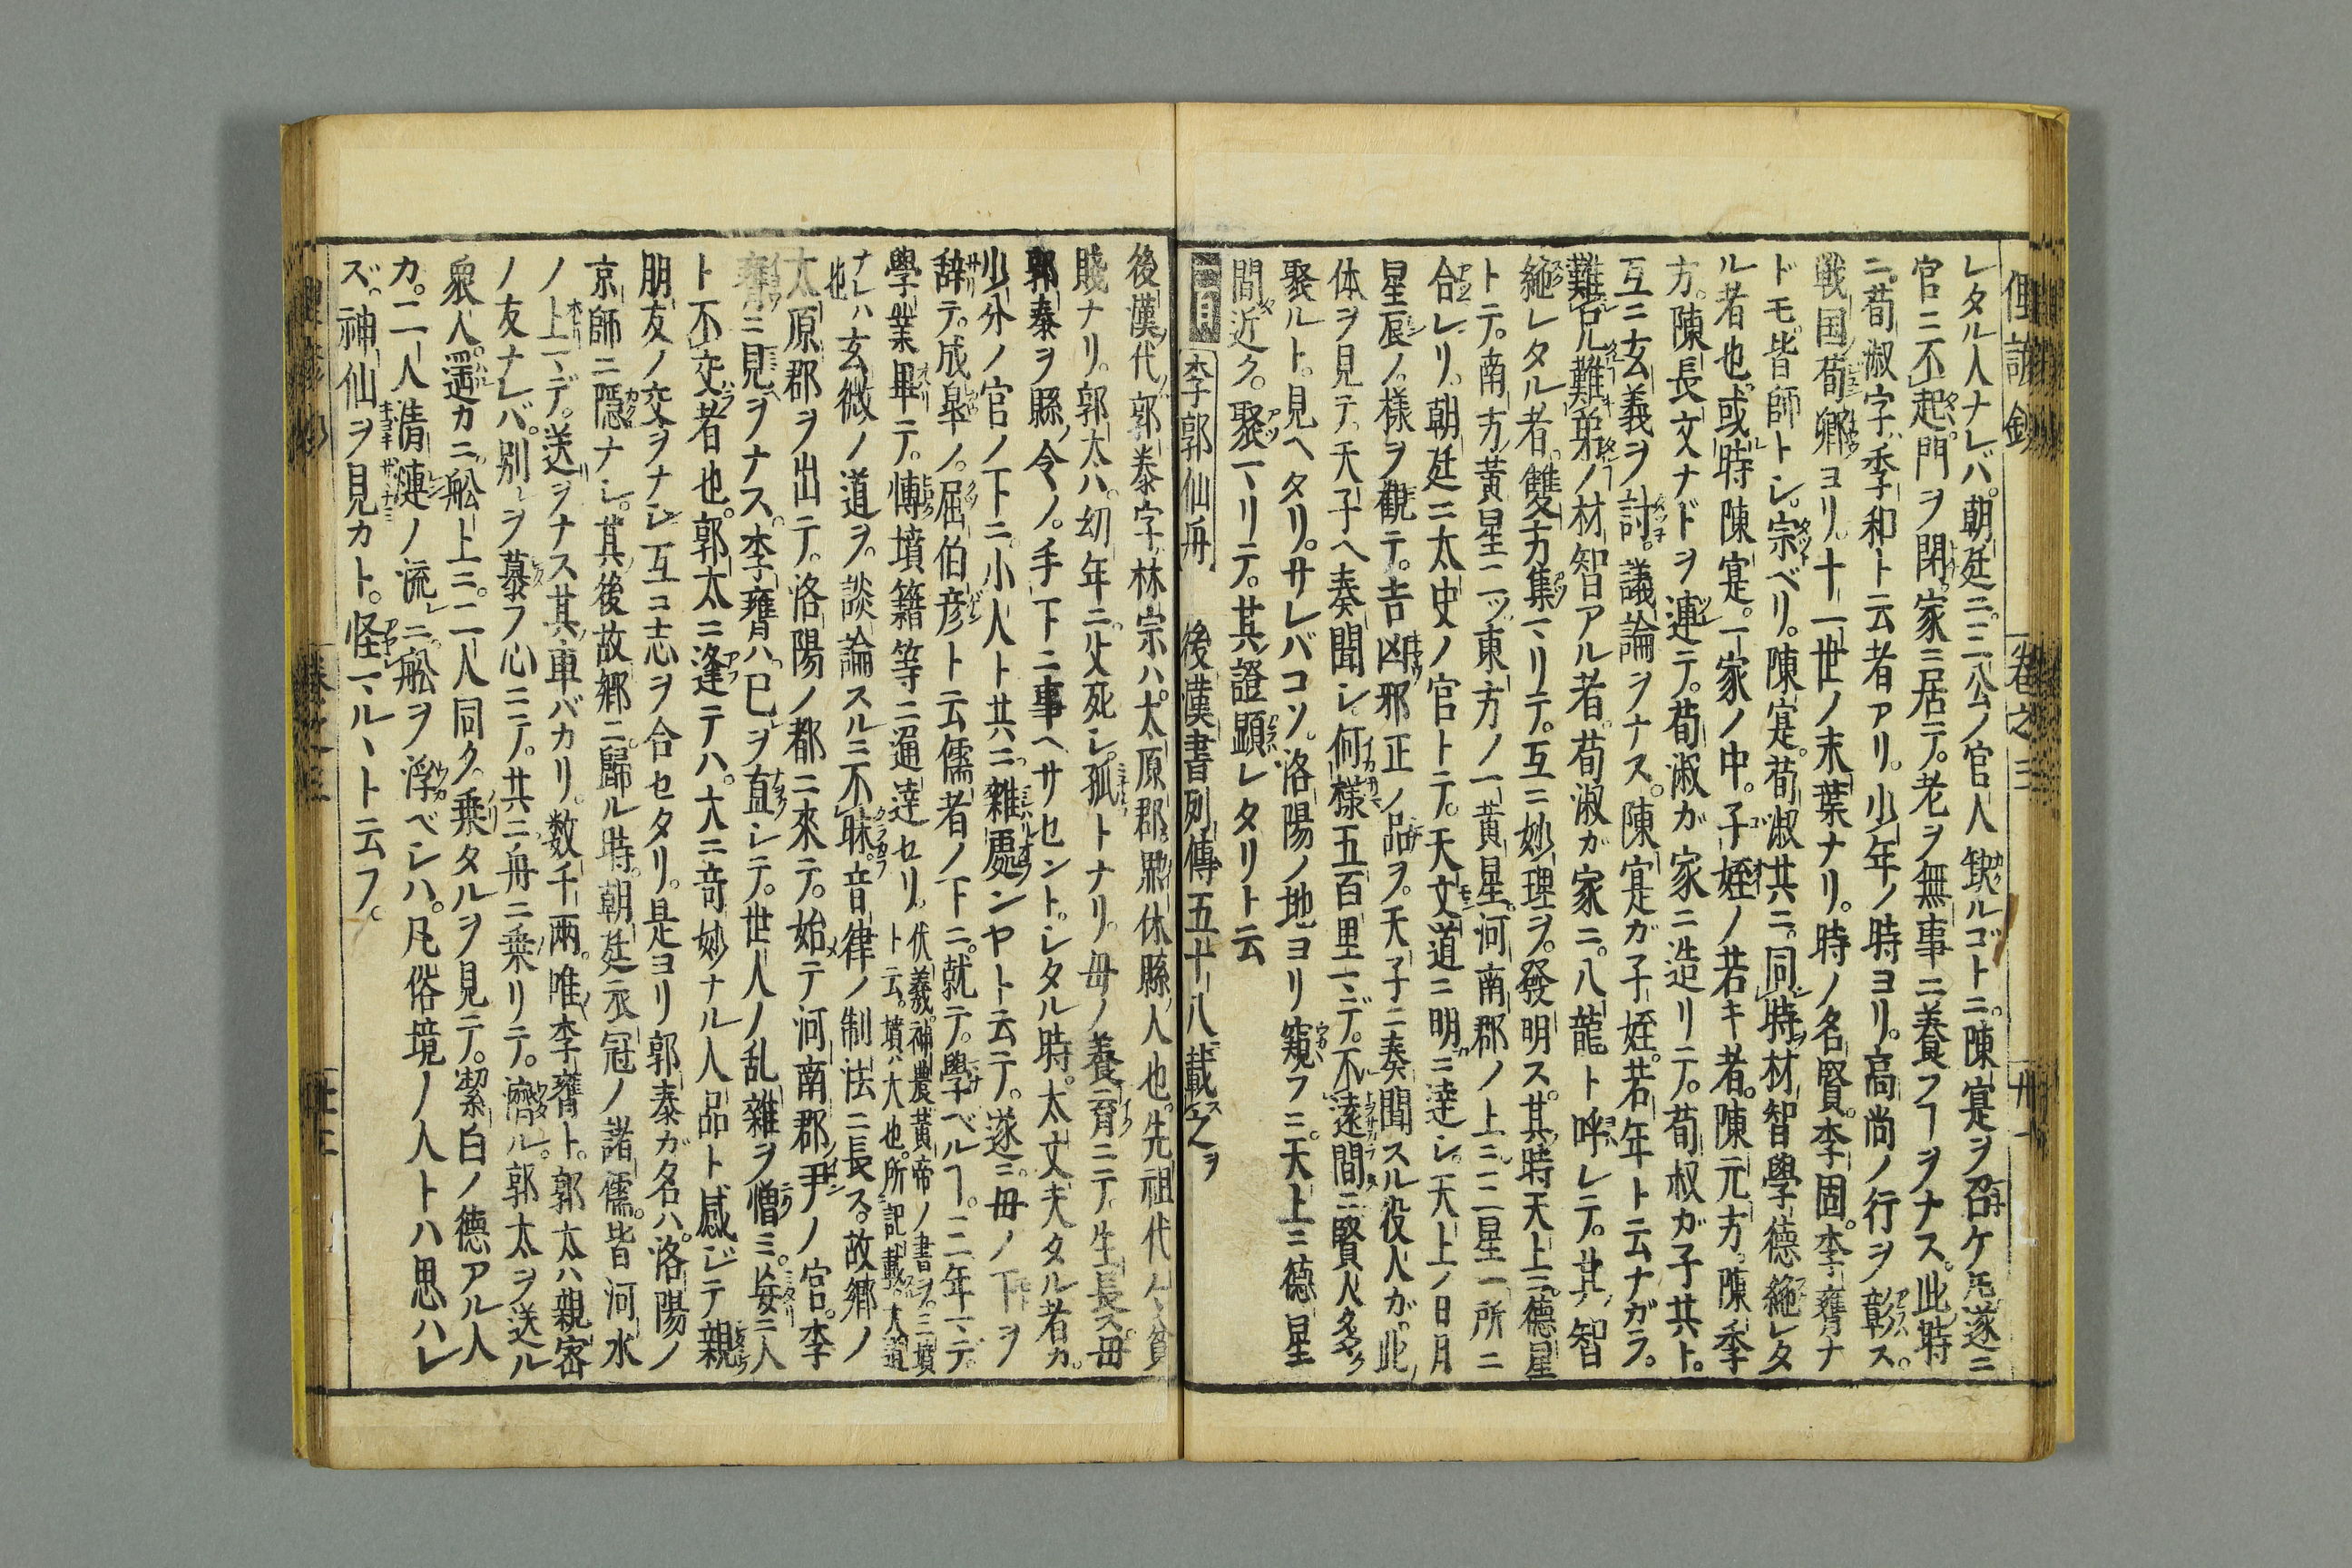 レタル人ナレバ。朝廷ニ。三公ノ官人缺ルゴトニ。陳寔ヲ召ケ𪜈遂ニ
官ニ不起。門ヲ閉。家ニ居テ。老ヲ無事ニ養フヿヲナス。此時
ニ。荀淑字ハ季和ト云者アリ。少年ノ時ヨリ。高尚ノ行ヲ彰ス。
戦国荀卿ヨリ。十一世ノ末葉ナリ。時ノ名賢。李固。李膺ナ
ドモ。皆師トシ。宗ベリ。陳寔。荀淑共ニ。同時材智學德絶レタ
ル者也。或時陳寔。一家ノ中。子姪ノ若キ者。陳元方。陳季
方。陳長文ナドヲ連テ。荀淑ガ家ニ造リテ。荀叔ガ子共ト。
互ニ玄義ヲ討。議論ヲナス。陳寔ガ子姪。若年ト云ナガラ。
難兄難弟ノ材智アル者。荀淑ガ家ニ。八龍ト呼レテ。其智
絶レタル者。雙方集マリテ。互ニ妙理ヲ。發明ス。其時天上ニ德星
トテ。南方ノ黃星二ッ東方ノ一黃星。河南郡ノ上ニ三星一所ニ
合レリ。朝廷ニ太史ノ官トテ。天文道ニ明ニ達シ。天上ノ日月
星辰ノ。様ヲ觀テ。吉凶邪正ノ品ヲ。天子ニ奏聞スル役人ガ。此
体ヲ見テ。天子ヘ奏聞シ。何様五百里マデ。不遠間ニ賢人多ク
聚ルト。見ヘタリ。サレバコソ。洛陽ノ地ヨリ窺フニ。天上ニ德星
間近ク。聚マリテ。其證顕レタリト云
李郭仙舟　後漢書列傳五十八載之ヲ
後漢代郭泰字林宗ハ。太原郡。界休縣ノ人也。先祖代々貧
賤ナリ。郭太ハ。幼年ニ父死シ。孤トナリ。母ノ養育ニテ生長ス。母
郭泰ヲ縣令ノ。手下ニ事ヘサセント。シタル時。太丈夫タル者カ。
少分ノ官ノ下ニ。小人ト共ニ雜處ンヤト云テ。遂ニ母ノ下ヲ
辞テ。成皐ノ。屈伯彦ト云儒者ノ下ニ。就テ。學ベルヿ。三年マデ。
學業畢テ。博墳籍等ニ通達セリ。伏羲。神農。黃帝ノ書ヲ。三墳ト云。墳ハ大也。所記載。大道ナレハ也
玄微ノ道ヲ。談論スルニ不昧。音律ノ制法ニ長ス。故郷ノ
太原郡ヲ出テ。洛陽ノ都ニ來テ。始テ河南郡尹ノ官。李
膺ニ見ヲナス。李膺ハ。己ヲ直シテ。世人ノ乱雜ヲ憎ミ。妄ニ人
ト不交者也。郭太ニ逢テハ。大ニ奇妙ナル人品ト感ジテ親
朋友ノ交ヲナシ互コ志ヲ合セタリ。是ヨリ郭泰ガ名ハ。洛陽ノ
京師ニ隠ナシ。其後故郷ニ歸ル時。朝廷衣冠ノ諸儒。皆河水
ノ上マデ。送ヲナス其車バカリ。数千兩。唯李膺ト。郭太ハ親密
ノ友ナレバ。別ヲ慕フ心ニテ。共ニ舟ニ乘リテ。濟ル。郭太ヲ送ル
衆人。遥カニ。舩上ニ。二人同ク。乘タルヲ見テ。潔白ノ德アル人
カ。二人清漣ノ流ニ。舩ヲ浮ベシハ。凡俗境ノ人トハ思ハレ
ズ。神仙ヲ見カト。怪マルヽト云フ。